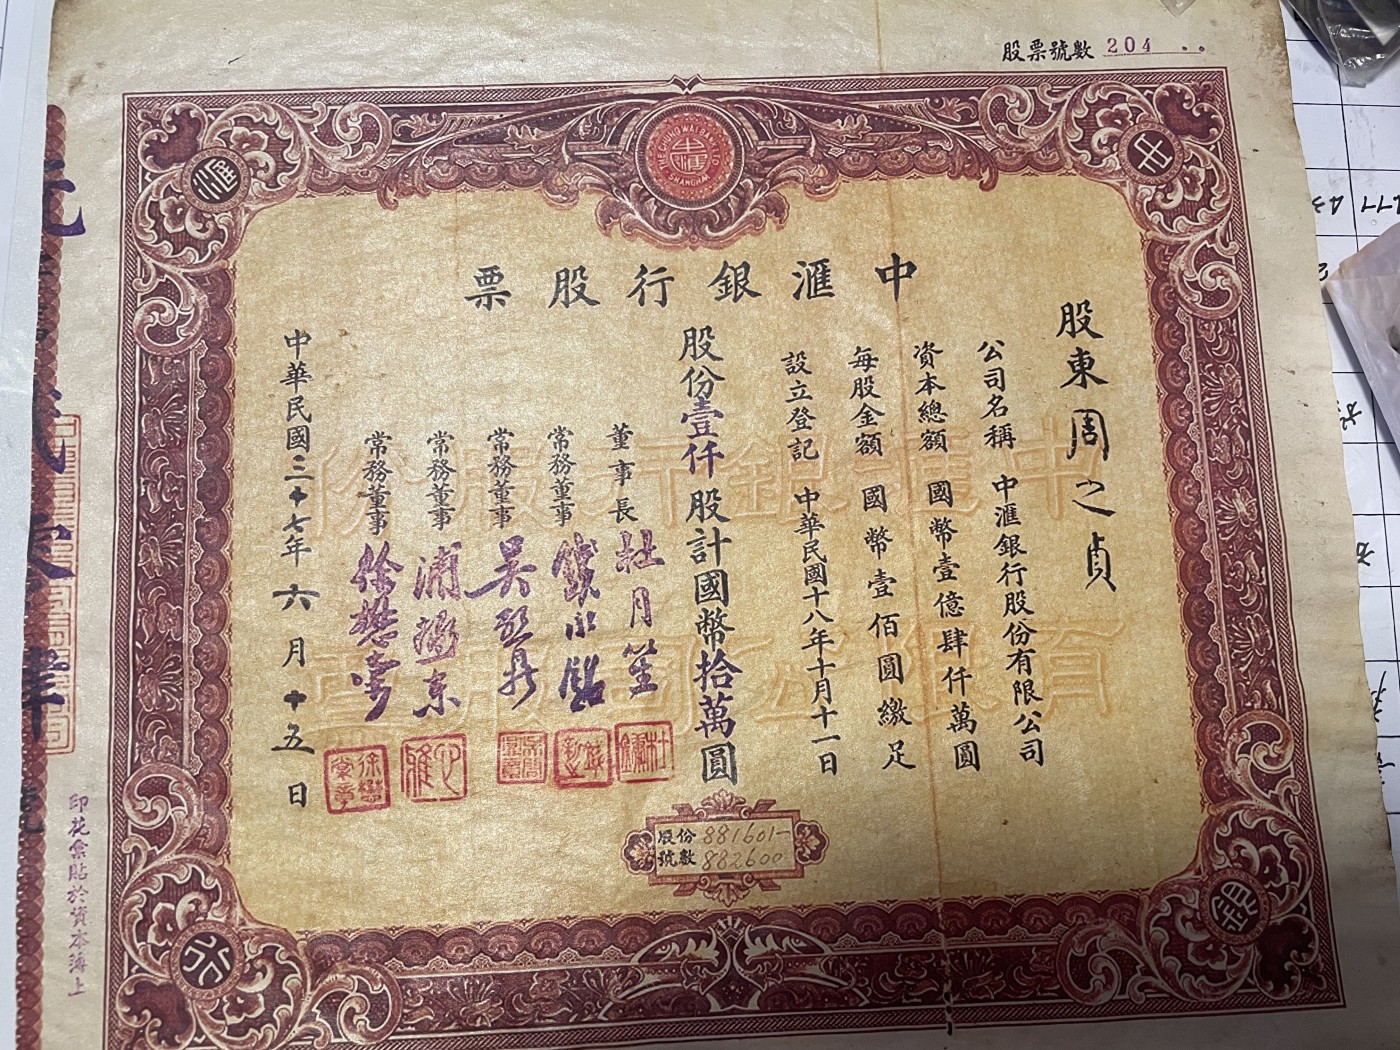 股票號數 204
THE CHUNG WAI BANK LD
SHANGHAI
中匯
中
匯
銀
行
中滙銀行股票
股東 周之貞
公司名稱 中滙銀行股份有限公司
資本總額 國幣壹億肆仟萬圓
每股金額 國幣壹佰圓繳足
設立登記 中華民國十八年十月十一日
股份壹仟股計國幣拾萬圓
董事長 杜月笙
常務董事
常務董事 吳啟鼎
常務董事 浦拯東
常務董事 徐懋棠
中華民國三十七年六月十五日
股份號數 881601-882600
印花票貼於資本簿上